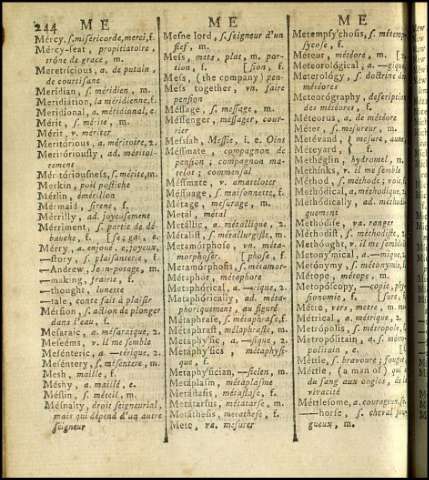 244 M E
Mércy, s. miséricorde, merci, f.
Mércy-seat, propitiatoire,
trône de grace, m.
Meretrícious, a. de putain,
de courtisane
Merídian, s. méridien, m.
Meridiátion, la méridienne, f.
Merídional, a. méridional, e
Mérit, s. mérite, m.
Mérit, v. mériter
Meritórious, a. méritoire, 2.
Meritóriously, ad. méritoi-
rement
Meritóriousness, s. mérite, m.
Merkin, poil postiche
Mérlin, émérillon
Mérmaid, sirene, f.
Mérrily, ad. joyeusement
Mérriment, s. partie de dé-
bauche, f. [se; gai, e.
Mérry, a. enjoué, e; joyeux,
—story, s. plaisanterie, f.
—Andrew, Jean-potage, m.
—making, frairie, f.
—thought, lunette
—tale, conte fait à plaisir
Mérsion, s. action de plonger
dans l'eau, f.
Mesaraic, a. mésaraïque, 2.
Meseéms, v. il me semble
Mesénteric, a. —térique, 2.
Mésentery, s. mésentere, m.
Mesh, maille, f.
Méshy, a. maillé, e.
Méslin, s. méteil, m.
Mésnalty, droit seigneurial,
mais qui dépend d'un autre
seigneur
M E
Mesne lord, s. seigneur d'un
fief, m.
Mess, mets, plat, m. por-
tion, f.
Mess, (the company) pen-
Mess together, vn. faire
pension
Méssage, s. message, m.
Méssenger, messager, cour-
rier
Messíah, Messie, i. e. Oint
Méssmate, compagnon de
pension; compagnon ma-
telot; commensal
Méssmate, v. amateloter
Méssuage, s. maisonnette, f.
Métage, mesurage, m.
Métal, métal
Metállic, a. métallique, 2.
Métalist, s. métallurgiste, m.
Metamórphose, vn. méta-
morphoser [phose, f.
Metamórphosis, s. métamor-
Métaphor, métaphore
Metaphórical, a. —rique, 2.
Metaphórically, ad. méta-
phoriquement, au figuré
Métaphrase, s. métaphrase, f.
Métaphrast, métaphraste, m.
Metaphysic, a. —sique, 2.
Metaphysics, métaphysi-
que, f.
Metaphysician, —sicien, m.
Métaplasm, métaplasme
Metástasis, métastase, f.
Metatarsus, métatarse, m.
Metáthesis, métathese, f.
Mete, va. mesurer
M E
Metempsy'chosis, s. métemp-
sycose, f.
Méteor, météore, m.
Meteorológical, a. —gique,
Meteorology, s. doctrine des
météores
Meteorógraphy, description
des météores
Meteorous, a. de météore
Méter, s. mesureur, m.
Metewánd,
Méteyard,
Methéglin, hydromel, m.
Methinks, v. il me semble
Méthod, s. méthode; voie, f.
Methódical, a. méthodique, 2
Methódically, ad. méthodi-
quement
Méthodise, va. ranger
Méthodist, s. méthodiste,
Methought, v. il me sembloit
Metonymical, a. —mique,
Metónymy, s. métonymie,
Métope, métope,
Metopóscopy,
sionomie, f.
Métre, vers, metre, m.
Métrical, a. métrique, 2.
Metrópolis, s. métropole,
Metropólitan, a. s.
politain, e.
Méttle, s. bravoure; fougue,
Méttle, (a man of) qui
du sang aux ongles, de la
vivacité
Méttlesome, a. courageux,
—horse, s. cheval fou-
gueux, m.